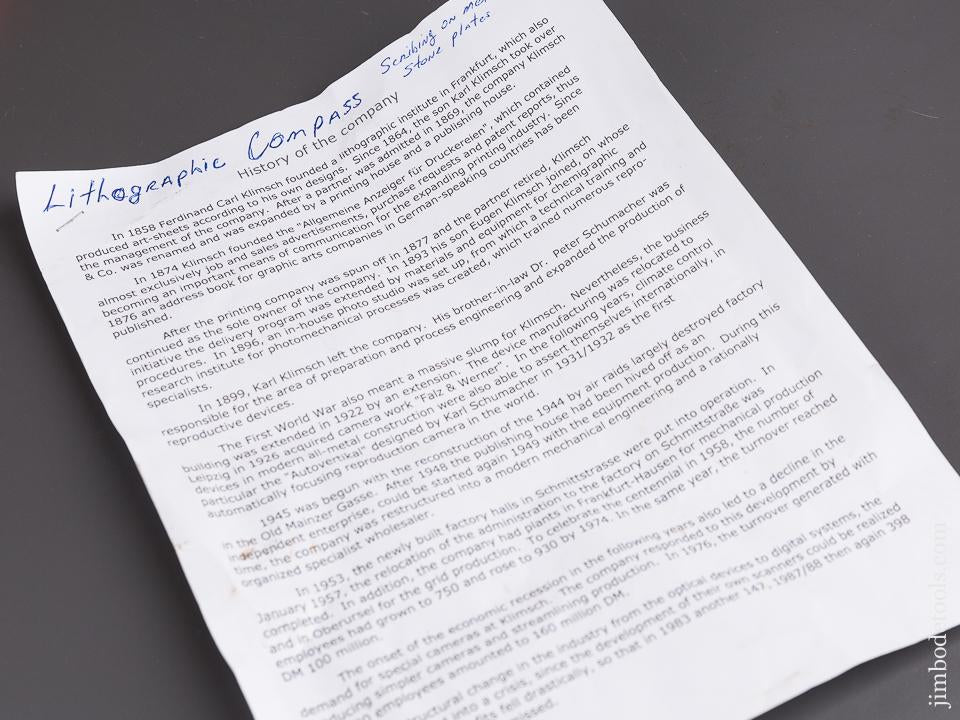 Scribing on
stone plates
Lithographic Compass
History of the company
In 1858 Ferdinand Carl Klimsch founded a lithographic institute in Frankfurt, which also
produced art-sheets according to his own designs. Since 1864, the son Karl Klimsch took over
the management of the company. After a partner was admitted in 1869, the company Klimsch
& Co. was renamed and was expanded by a printing house and a publishing house.
In 1874 Klimsch founded the "Allgemeine Anzeiger für Druckereien", which contained
almost exclusively job and sales advertisements, purchase requests and patent reports, thus
becoming an important means of communication for the expanding printing industry. Since
1876 an address book for graphic arts companies in German-speaking countries has been
published.
After the printing company was spun off in 1877 and the partner retired, Klimsch
continued as the sole owner of the company. In 1893 his son Eugen Klimsch joined, on whose
initiative the delivery program was extended by materials and equipment for chemigraphic
procedures. In 1896, an in-house photo studio was set up, from which a technical training and
research institute for photomechanical processes was created, which trained numerous repro-
specialists.
In 1899, Karl Klimsch left the company. His brother-in-law Dr. Peter Schumacher was
responsible for the area of preparation and process engineering and expanded the production of
reproductive devices.
The First World War also meant a massive slump for Klimsch. Nevertheless, the business
building was extended in 1922 by an extension. The device manufacturing was relocated to
Leipzig in 1926 acquired camera work "Falz & Werner". In the following years, climate control
devices in modern all-metal construction were also able to assert themselves internationally, in
particular the "Autovertikal" designed by Karl Schumacher in 1931/1932 as the first
automatically focusing reproduction camera in the world.
1945 was begun with the reconstruction of the 1944 by air raids largely destroyed factory
in the Old Mainzer Gasse. After 1948 the publishing house had been hived off as an
independent enterprise, could be started again 1949 with the equipment production. During this
time, the company was restructured into a modern mechanical engineering and a rationally
organized specialist wholesaler.
In 1953, the newly built factory halls in Schmittstrasse were put into operation. In
January 1957, the relocation of the administration to the factory on Schmittstraße was
completed. In addition, the company had plants in Frankfurt-Hausen for mechanical production
and in Oberursel for the grid production. To celebrate the centennial in 1958, the number of
employees had grown to 750 and rose to 930 by 1974. In the same year, the turnover reached
DM 100 million.
The onset of the economic recession in the following years also led to a decline in the
demand for special cameras at Klimsch. The company responded to this development by
producing simpler cameras and streamlining production. In 1976, the turnover generated with
employees amounted to 160 million DM.
structural change in the industry from the optical devices to digital systems, the
into a crisis, since the development of their own scanners could be realized
fell drastically, so that in 1983 another 147, 1987/88 then again 398
jimbodetools.com